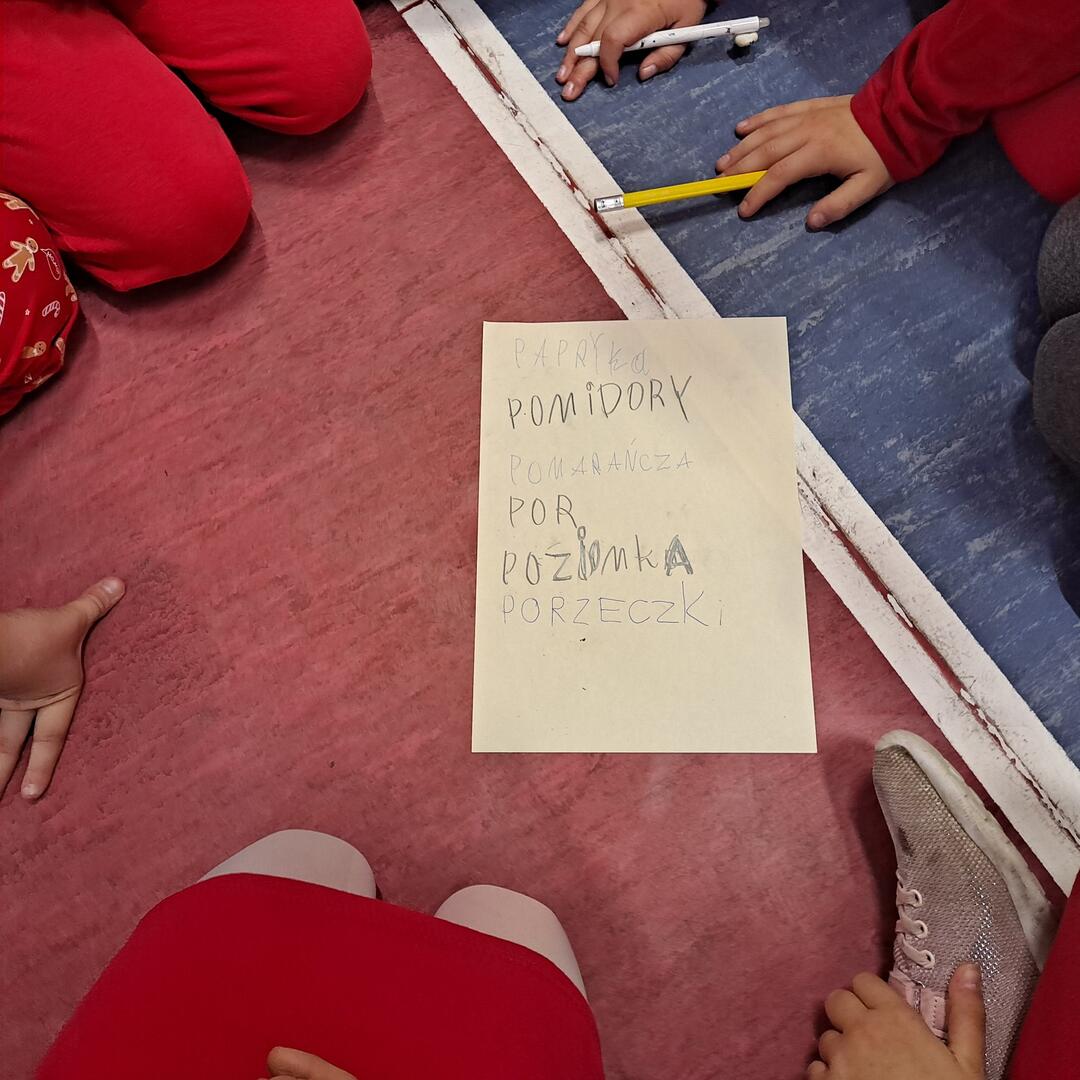 PAPRYka
POMiDORY
POMARAŃCZA
POR
POZiOMkA
PORZECZKi